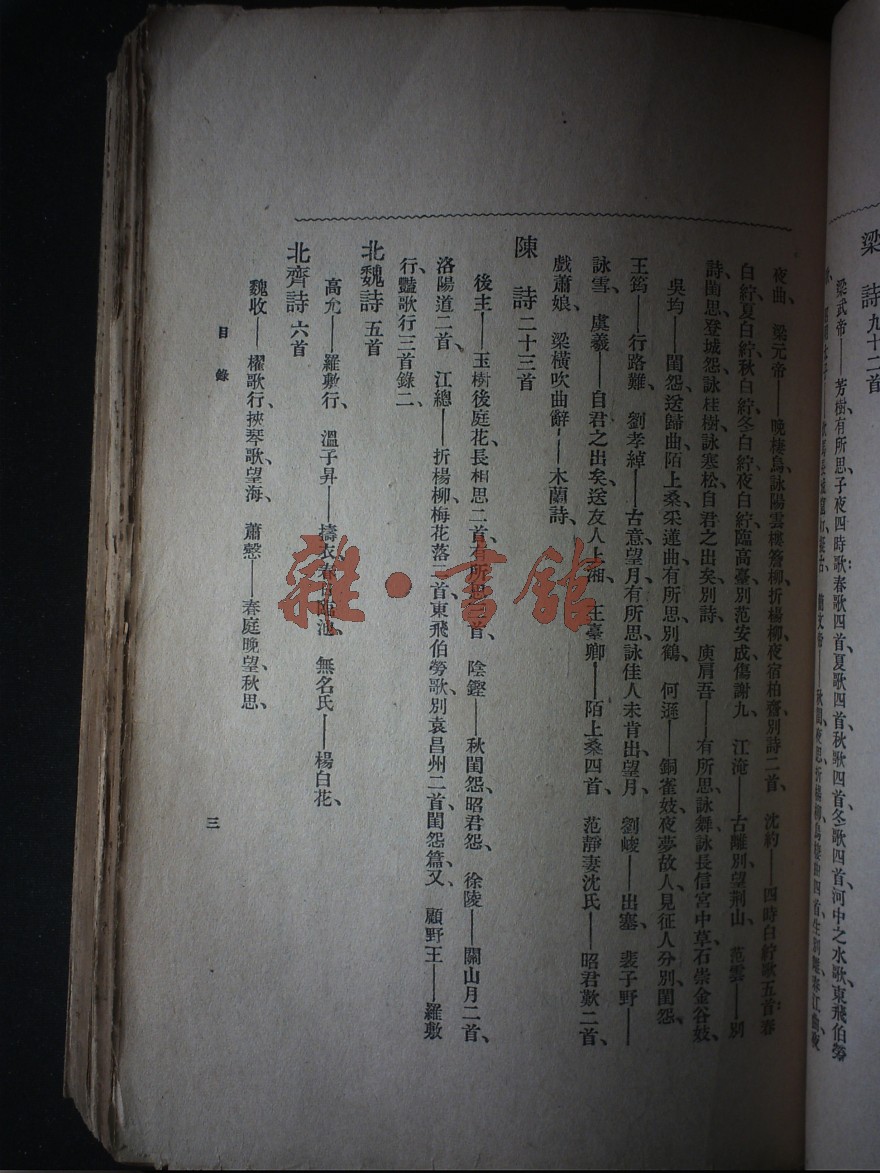 梁　詩 九十二首
梁武帝——芳樹、有所思、子夜四時歌：春歌四首、夏歌四首、秋歌四首、冬歌四首、河中之水歌、東飛伯勞
夜曲、　梁元帝——晚棲烏、詠陽雲樓簷柳、折楊柳、夜宿柏齋、別詩二首、　沈約——四時白紵歌五首：春
白紵、夏白紵、秋白紵、冬白紵、夜白紵、臨高臺、別范安成、傷謝九、　江淹——古離別、望荆山、　范雲——別
詩、閨思、登城怨、詠桂樹、詠寒松、自君之出矣、別詩、　庾肩吾——有所思、詠舞、詠長信宮中草、石崇金谷妓、
吳均——閨怨、送歸曲、陌上桑、采蓮曲、有所思、別鶴、　何遜——銅雀妓、夜夢故人、見征人分別、閨怨、
王筠——行路難、　劉孝綽——古意、望月有所思、詠佳人未肯出、望月、　劉峻——出塞、　裴子野——
詠雪、　虞羲——自君之出矣、送友人上湘、　王臺卿——陌上桑四首、　范靜妻沈氏——昭君歎二首、
戲蕭娘、　梁橫吹曲辭——木蘭詩、
陳　詩 二十三首
後主——玉樹後庭花、長相思二首、有所思三首、　陰鏗——秋閨怨、昭君怨、　徐陵——關山月二首、
洛陽道二首、　江總——折楊柳、梅花落二首、東飛伯勞歌、別袁昌州二首、閨怨篇、又、　顧野王——羅敷
行、豔歌行三首錄二、
北魏詩 五首
高允——羅敷行、　溫子昇——擣衣、春日臨池、　無名氏——楊白花、
北齊詩 六首
魏收——櫂歌行、挾琴歌、望海、　蕭慤——春庭晚望、秋思、
目　錄
三
雜·書館